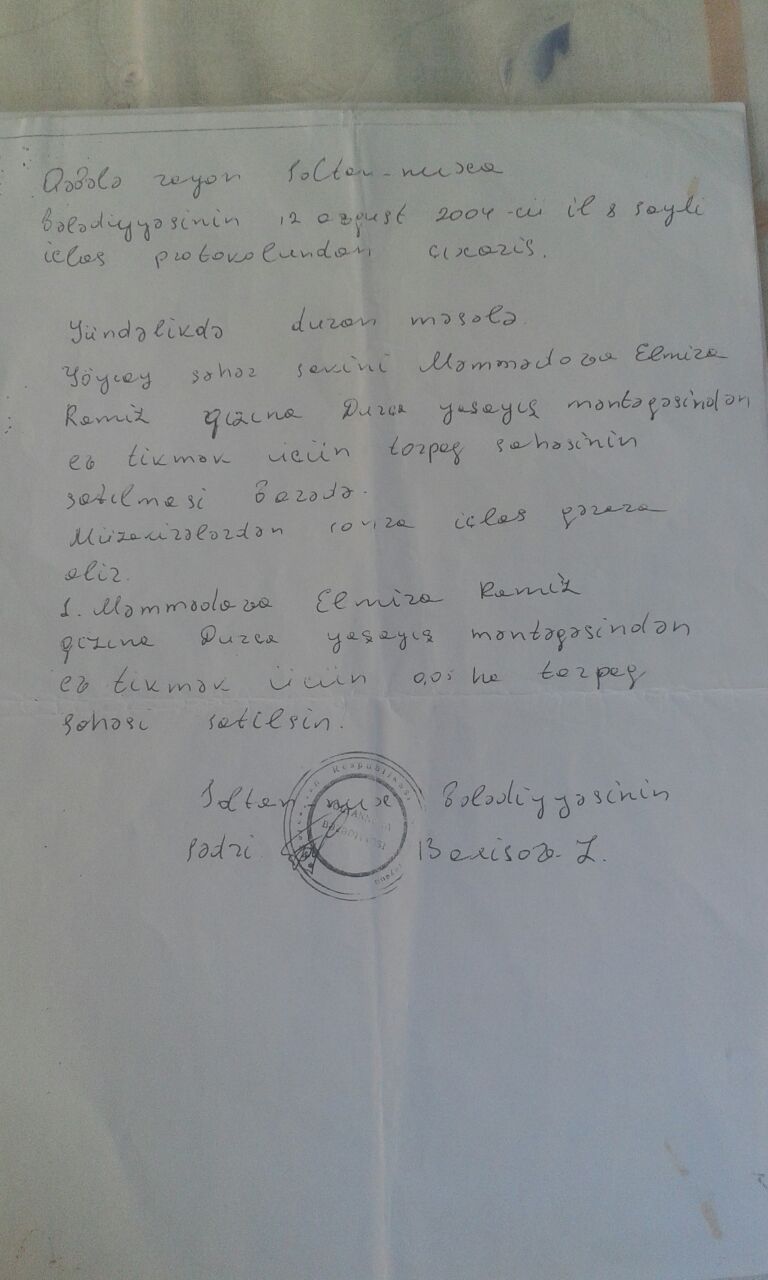 Qəbələ rayon Soltan-nuxa
bələdiyyəsinin 12 avqust 2004-cü il 8 sayli
iclas protokolundan çıxaris.
Gündəlikdə duran məsələ
Göyçay şəhər sakini Məmmədova Elmira
Ramiz qızına Duruca yaşayış məntəqəsindən
ev tikmək üçün torpaq sahəsinin
satılması barədə.
Müzakirələrdən sonra iclas qərara
alir.
1. Məmmədova Elmira Ramiz
qızına Duruca yaşayış məntəqəsindən
ev tikmək üçün 0,05 ha torpaq
sahəsi satılsin.
Soltan-nuxa bələdiyyəsinin
sədri Barisov Z.
Respublikası
BƏLƏDİYYƏSİ